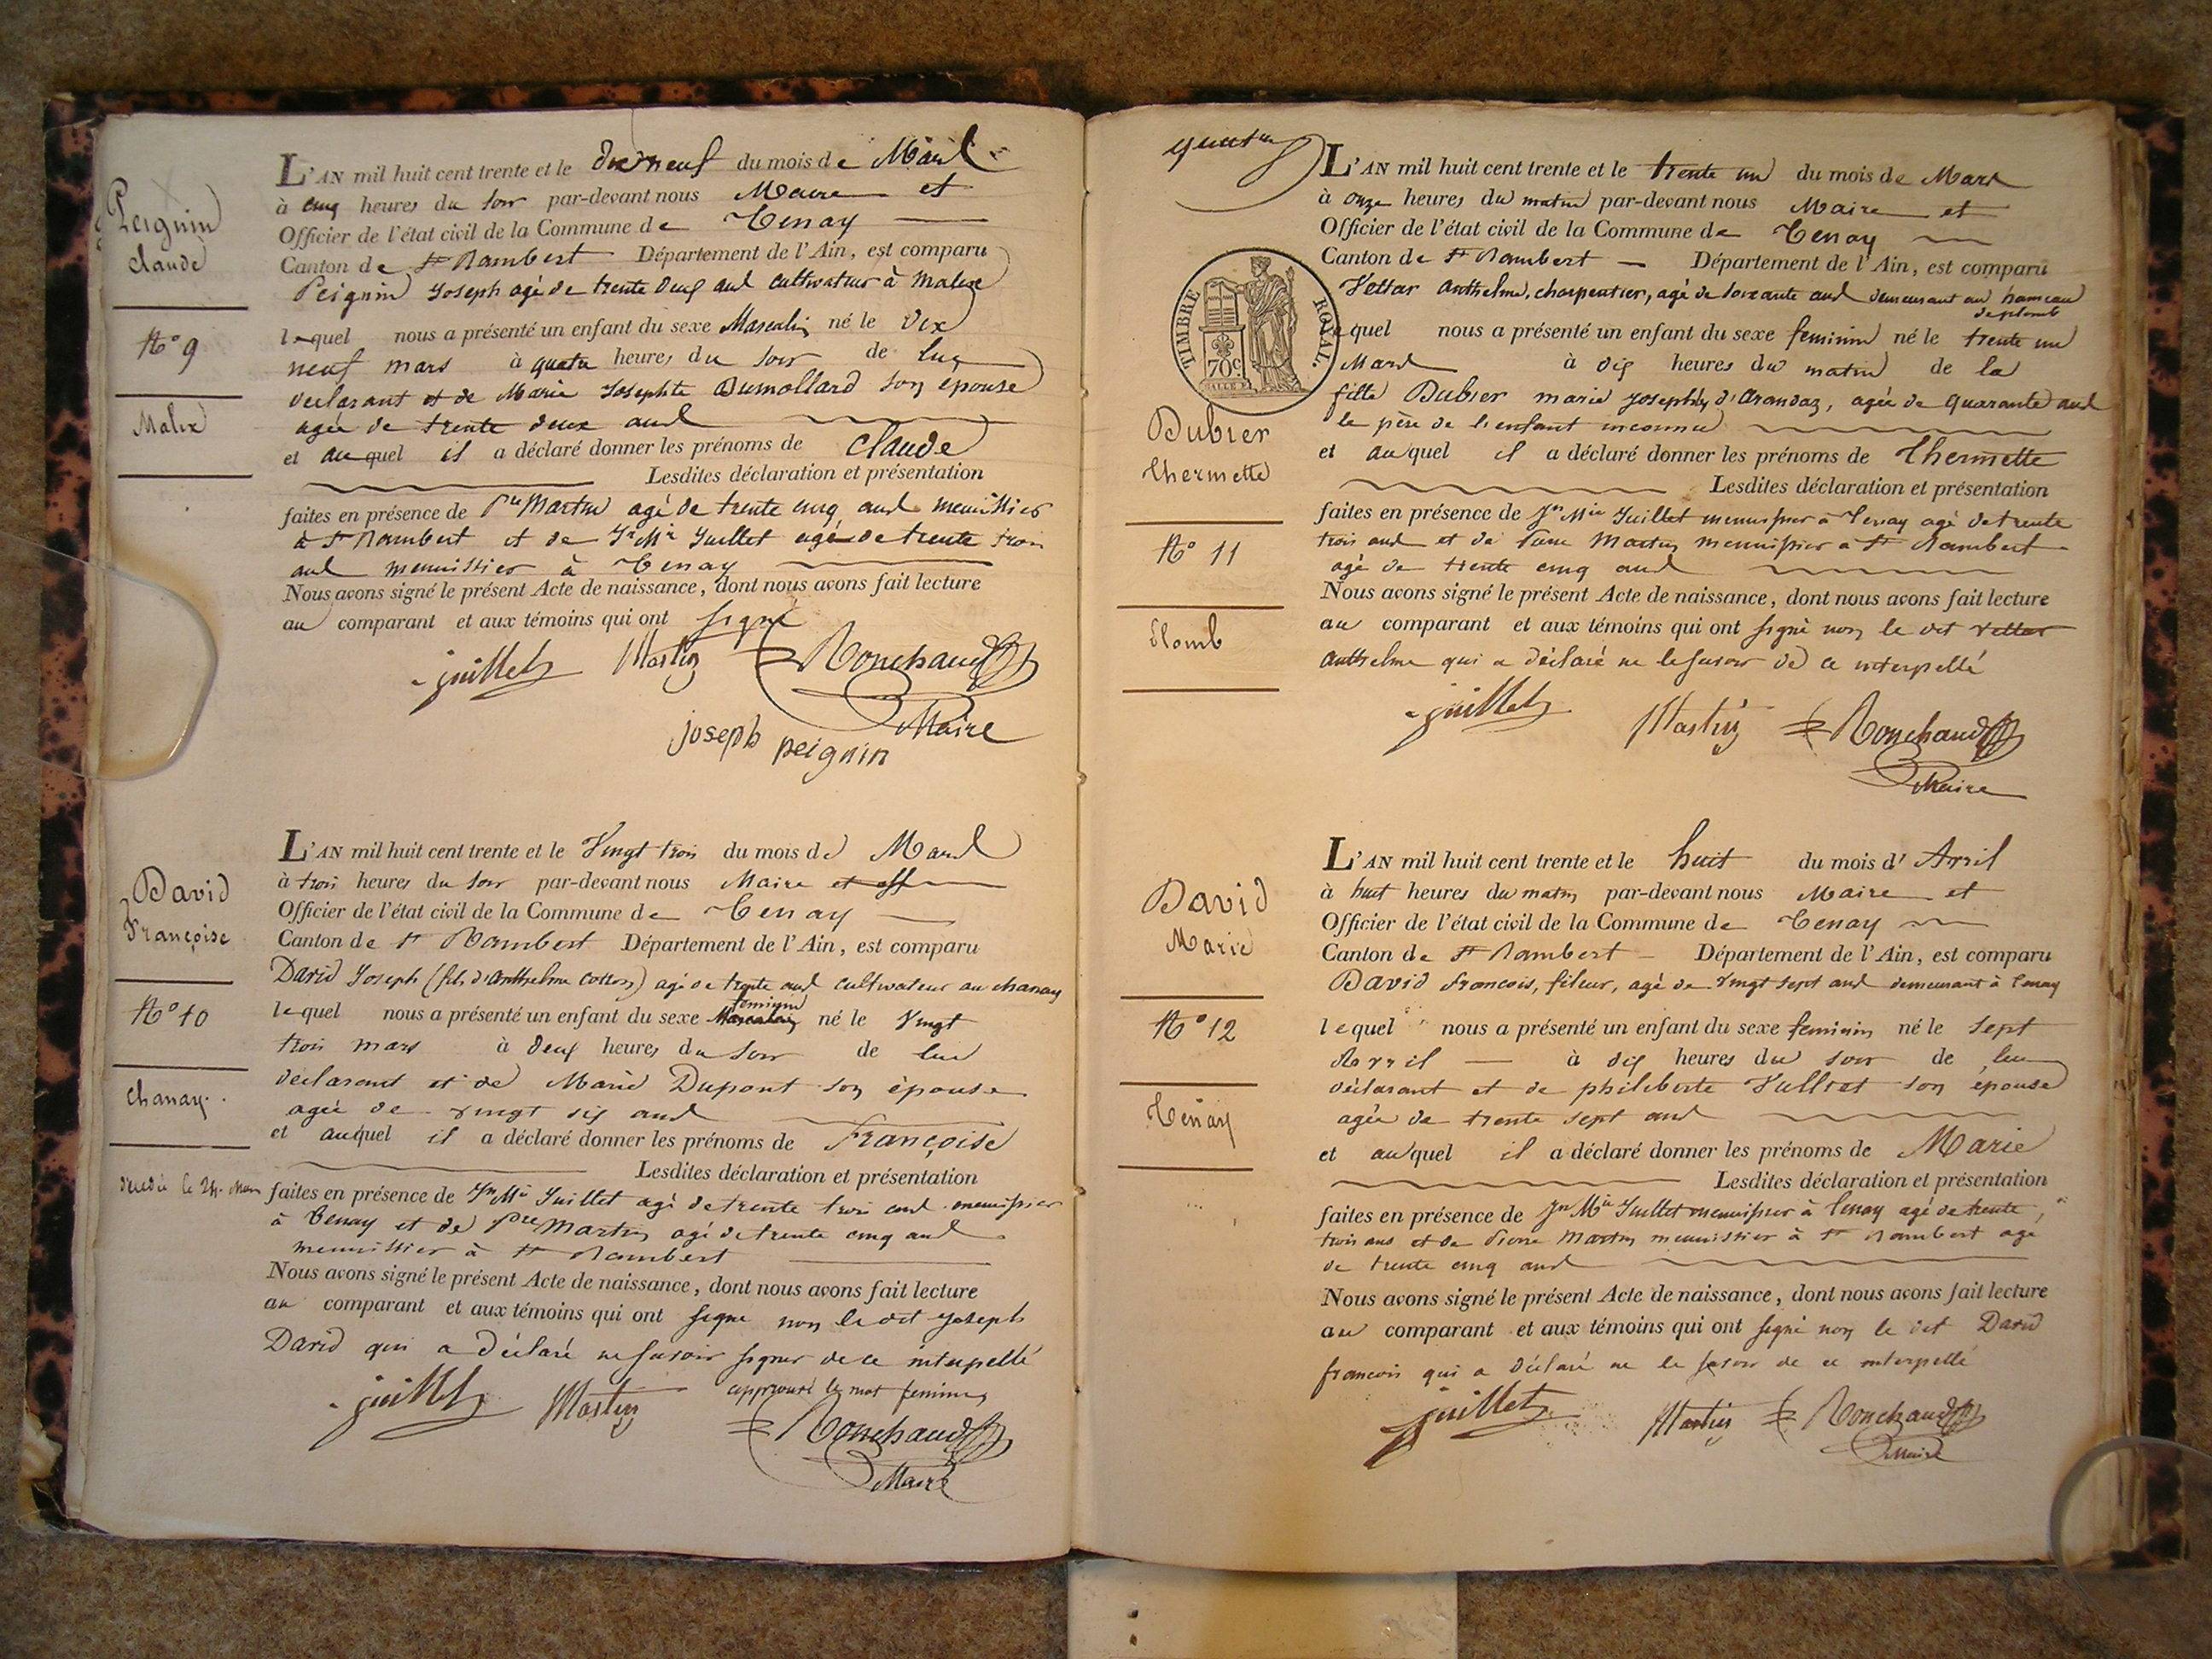 Peignin
claude
N° 9
Malix
L'AN mil huit cent trente et le dixneuf du mois de Mars
à cinq heures du soir par-devant nous Maire et
Officier de l'état civil de la Commune de Tenay
Canton de St Rambert Département de l'Ain, est comparu
Peignin Joseph agé de trente deux ans cultivateur à Malix
lequel nous a présenté un enfant du sexe Masculin né le dix
neuf mars à quatre heures du soir de lui
déclarant et de Marie Josephte Dumollard son épouse
agée de trente deux ans
et auquel il a déclaré donner les prénoms de Claude
Lesdites déclaration et présentation
faites en présence de Pre Martin agé de trente cinq ans menuisier
à St Rambert et de Jn Mie Juillet agé de trente trois
ans menuisier à Tenay
Nous avons signé le présent Acte de naissance, dont nous avons fait lecture
au comparant et aux témoins qui ont signé
juillet Martin Ronchaud
Maire
joseph peignin
David
Françoise
N° 10
Chanay.
décédée le 24 Mars
L'AN mil huit cent trente et le Vingt trois du mois de Mars
à trois heures du soir par-devant nous Maire et off
Officier de l'état civil de la Commune de Tenay
Canton de St Rambert Département de l'Ain, est comparu
David Joseph (fils d'Anthelme) agé de trente ans cultivateur au chanay
feminin
lequel nous a présenté un enfant du sexe Masculin né le Vingt
trois mars à deux heures du soir de lui
déclarant et de Marie Dupont son épouse
agée de vingt six ans
et auquel il a déclaré donner les prénoms de Françoise
Lesdites déclaration et présentation
faites en présence de Jn Mie Juillet agé de trente trois ans menuisier
à Tenay et de Pre Martin agé de trente cinq ans
menuisier à St Rambert
Nous avons signé le présent Acte de naissance, dont nous avons fait lecture
au comparant et aux témoins qui ont signé non le dit Joseph
David qui a déclaré ne savoir signer de ce interpellé
approuvé le mot feminin
juillet Martin Ronchaud
Maire
TIMBRE ROYAL.
70c.
Dubier
thermette
N° 11
Plomb
L'AN mil huit cent trente et le trente un du mois de Mars
à onze heures du matin par-devant nous Maire et
Officier de l'état civil de la Commune de Tenay
Canton de St Rambert Département de l'Ain, est comparu
Vettar Anthelme, charpentier, agé de soixante ans demeurant au hameau
de plomb
lequel nous a présenté un enfant du sexe feminin né le trente un
Mars à dix heures du matin de la
fille Dubier marie josephte d'Arandaz, agée de quarante ans
le père de l'enfant inconnu
et auquel il a déclaré donner les prénoms de thermette
Lesdites déclaration et présentation
faites en présence de Jn Mie Juillet menuisier à Tenay agé de trente
trois ans et de Pierre Martin menuisier à St Rambert
agé de trente cinq ans
Nous avons signé le présent Acte de naissance, dont nous avons fait lecture
au comparant et aux témoins qui ont signé non le dit Vettar
Anthelme qui a déclaré ne le savoir de ce interpellé
juillet Martin Ronchaud
Maire
David
Marie
N° 12
Tenay
L'AN mil huit cent trente et le huit du mois d'Avril
à huit heures du matin par-devant nous Maire et
Officier de l'état civil de la Commune de Tenay
Canton de St Rambert Département de l'Ain, est comparu
David françois, fileur, agé de vingt sept ans demeurant à Tenay
lequel nous a présenté un enfant du sexe feminin né le sept
Avril à dix heures du soir de lui
déclarant et de philiberte Vulliet son épouse
agée de trente sept ans
et auquel il a déclaré donner les prénoms de Marie
Lesdites déclaration et présentation
faites en présence de Jn Mie Juillet menuisier à Tenay agé de trente
trois ans et de Pierre Martin menuisier à St Rambert agé
de trente cinq ans
Nous avons signé le présent Acte de naissance, dont nous avons fait lecture
au comparant et aux témoins qui ont signé non le dit David
françois qui a déclaré ne le savoir de ce interpellé
juillet Martin Ronchaud
Maire